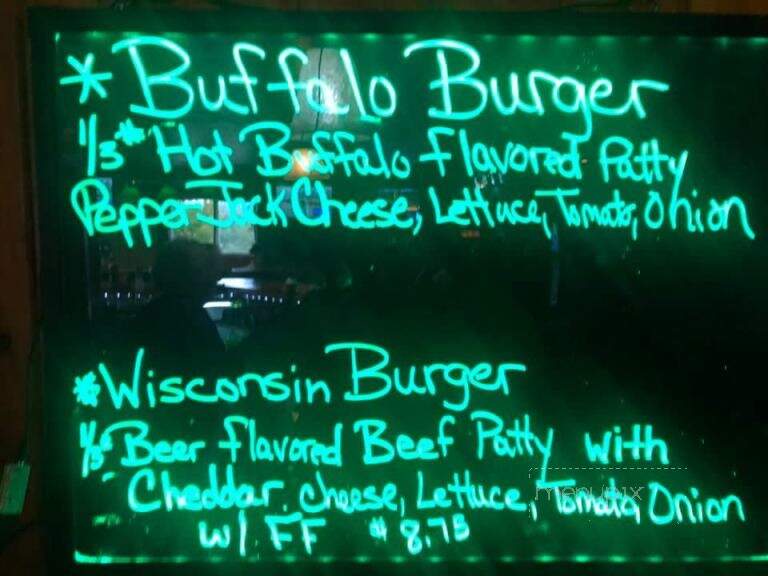 * Buffalo Burger
1/3# Hot Buffalo flavored Patty
Pepper Jack Cheese, Lettuce, Tomato, Onion
* Wisconsin Burger
1/3# Beer flavored Beef Patty with
Cheddar. cheese, Lettuce, Tomato, Onion
menupix
w/ FF $8.75